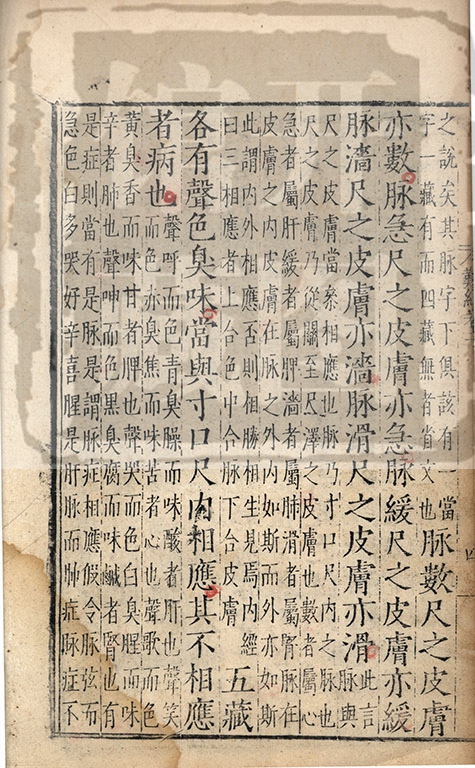 之說矣其脉字下俱該有一當
字一藏有而四藏無者省文也
脉數尺之皮膚
亦數脉急尺之皮膚亦急脉緩尺之皮膚亦緩
脉濇尺之皮膚亦濇脉滑尺之皮膚亦滑
此言
脉與
尺之皮膚當叅相應也脉乃寸口尺內之脉也
尺之皮膚乃從關至尺澤之皮膚也數者屬心
急者屬肝緩者屬脾濇者屬肺滑者屬腎脉在
皮膚之內皮膚在脉之外內如斯而外亦如斯
此謂內外相應否則相勝相生見焉內經
曰三相應者上合色中合脉下合皮膚
五藏
各有聲色臭味當與寸口尺內相應其不相應
者病也
聲呼而色青臭臊而味酸者肝也聲笑
而色赤臭焦而味苦者心也聲歌而色
黃臭香而味甘者脾也聲哭而色白臭腥而味
辛者肺也聲呻而色黑臭腐而味鹹者腎也有
是症則當有是脉是謂脉症相應假令脉弦而
急色白多哭好辛喜腥是肝脉而肺症脉症不